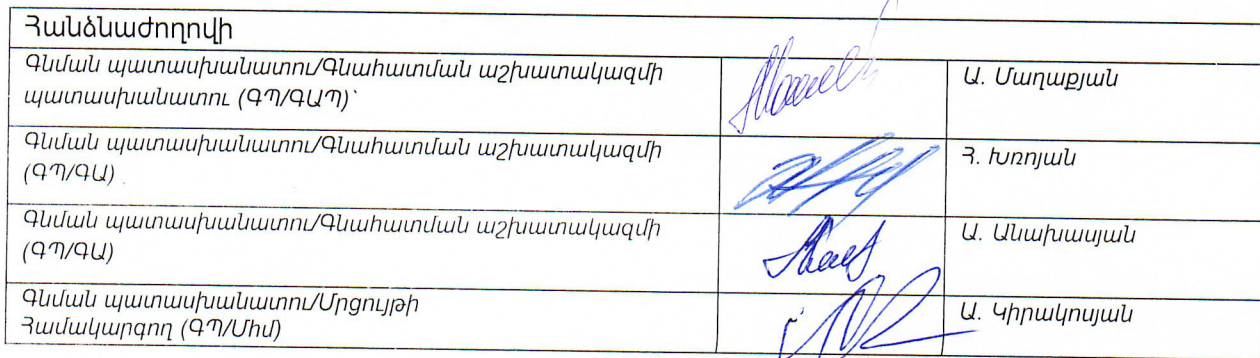 Հանձնաժողովի
Գնման պատասխանատու/Գնահատման աշխատակազմի
պատասխանատու (ԳՊ/ԳԱՊ)՝
Ա. Մաղաքյան
Գնման պատասխանատու/Գնահատման աշխատակազմի
(ԳՊ/ԳԱ)
Հ. Խռոյան
Գնման պատասխանատու/Գնահատման աշխատակազմի
(ԳՊ/ԳԱ)
Ա. Անախասյան
Գնման պատասխանատու/Մրցույթի
Համակարգող (ԳՊ/Միմ)
Ա. Կիրակոսյան